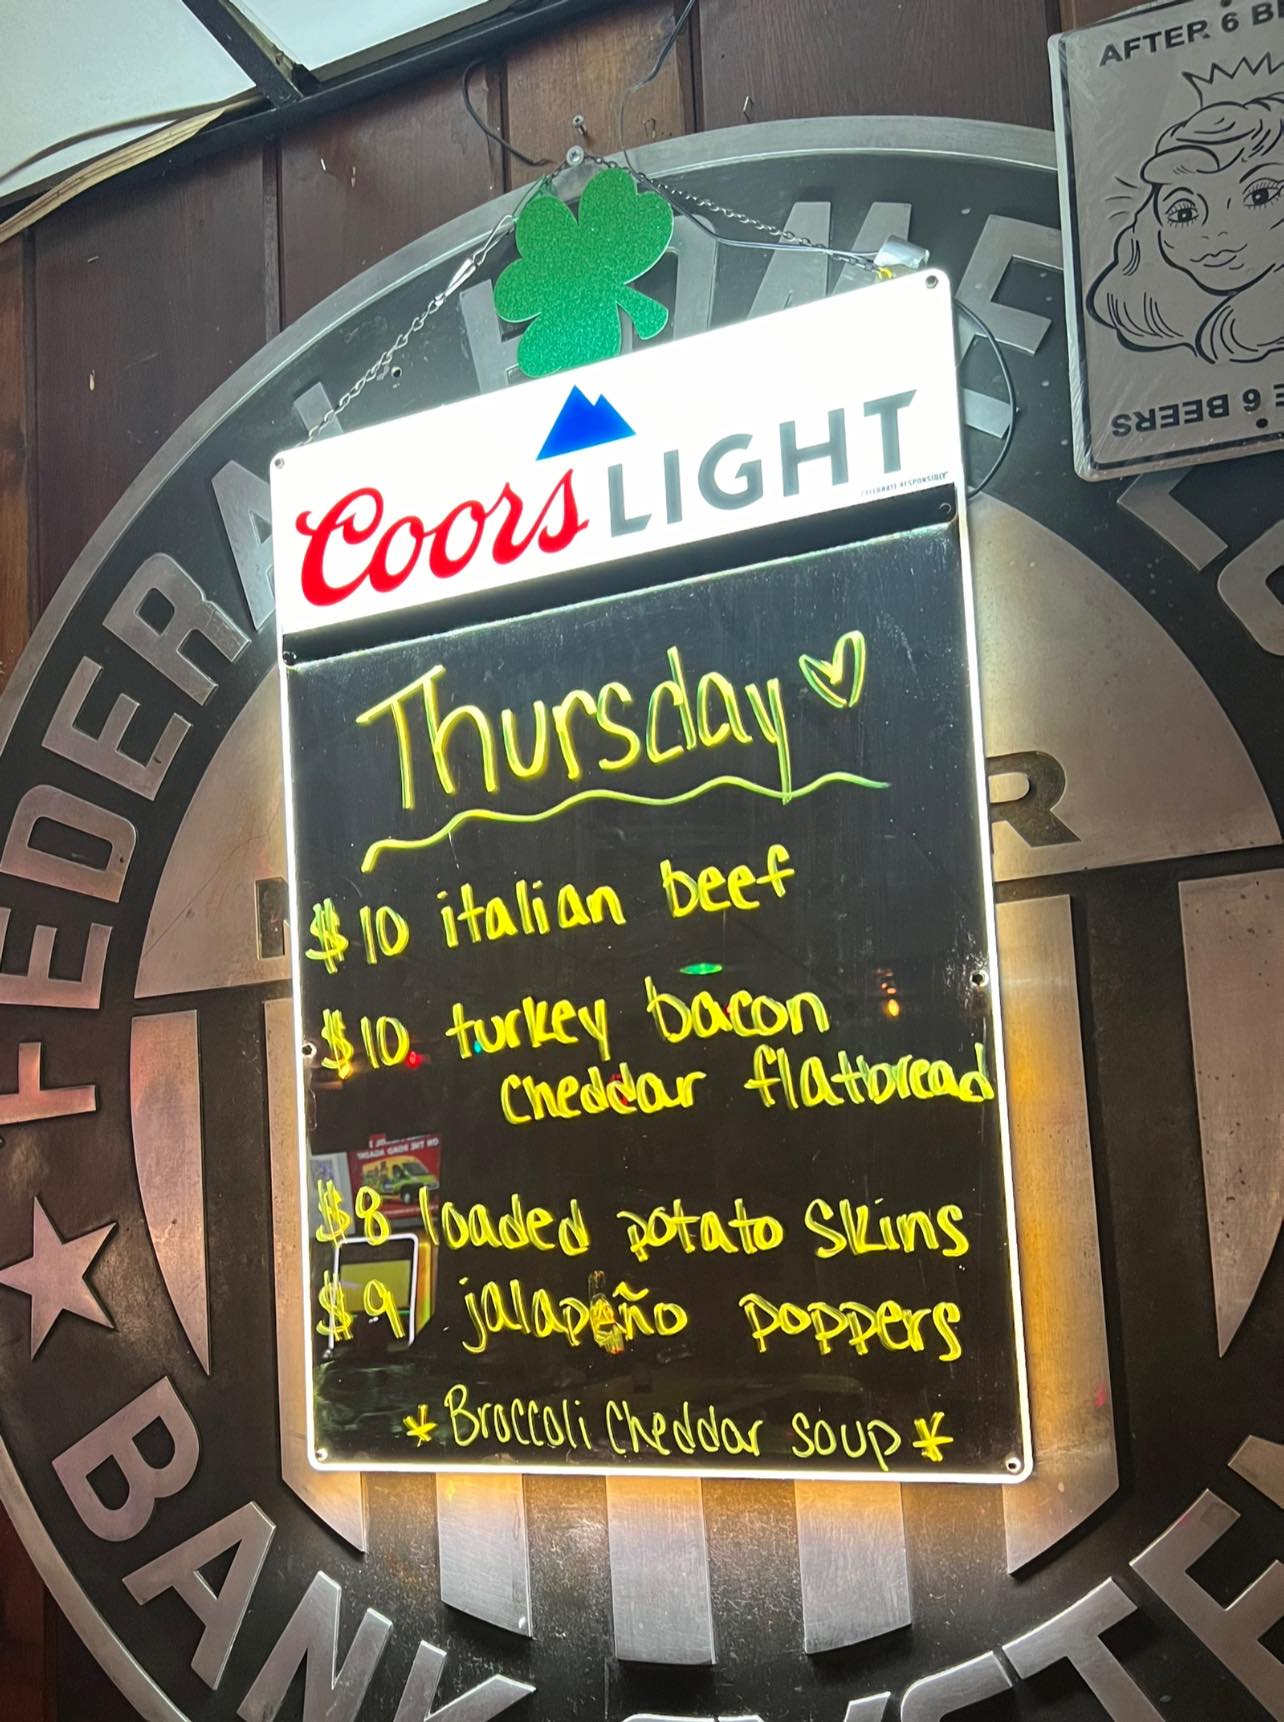 AFTER 6 BE
6 BEERS
FEDERAL HOME LO
MEMBER
BANK SYSTE
Coors LIGHT
CELEBRATE RESPONSIBLY
Thursday
$10 italian beef
$10 turkey bacon
cheddar flatbread
$8 loaded potato skins
$9 jalapeño poppers
*Broccoli Cheddar soup*